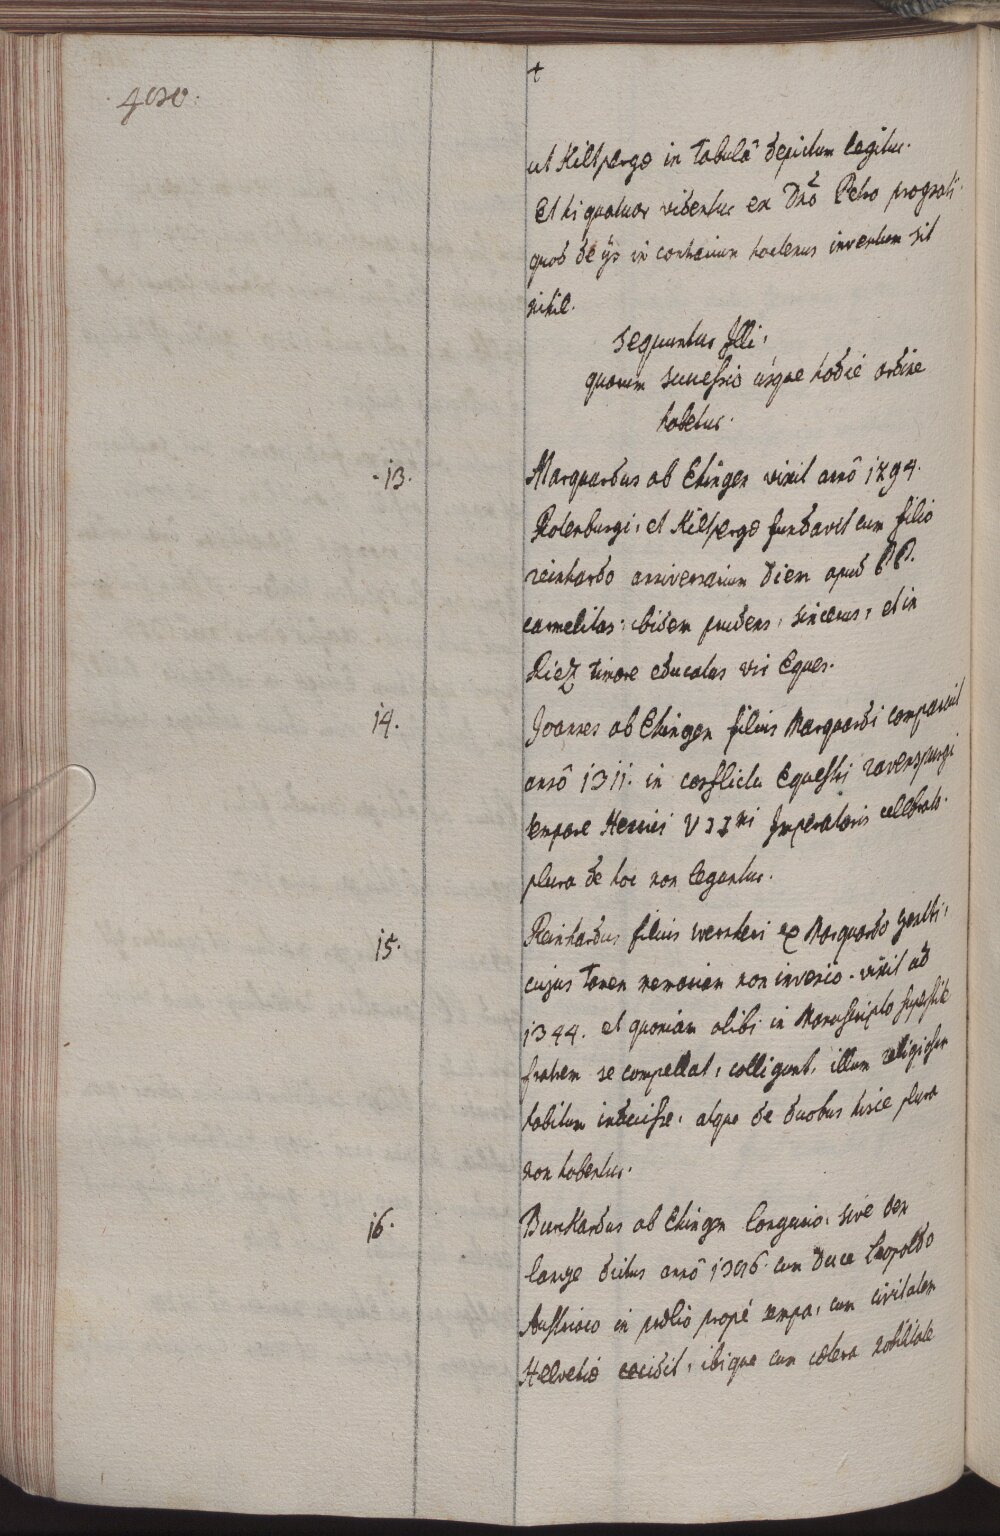 400.
+
ut Kiltperge in tabulâ depictum legitur.
Et hi quatuor videntur ex Dnô Petro prognati
quod de ijs in contrarium hactenus inventum sit
nihil.
sequuntur Illi,
quorum successio usque hodie ordine
habetur.
13.
Marquardus ab Ehingen vixit annô 1294.
Rotenburgi, et Kiltperge fundavit cum filio
reinhardo anniversarium diem apud PP.
carmelitas, ibidem prudens, sincerus, et in
Dei timore educatus vir Eques.
14.
Joannes ab Ehingen filius Marquardi comparuit
annô 1311. in conflictu Equestri ravenspurgi
tempore Henrici VII mi Imperatoris celebrato.
plura de hoc non leguntur.
15.
Reinhardus filius wernheri ex Marquardo geniti,
cujus tamen memoriam non invenio. vixit ad
1344. et quoniam alibi in Manuscripto superstite
fratrem se compellat, colligunt, illum religiosum
habitum induisse, atque de duobus hisce plura
non habentur.
16.
Burkardus ab Ehingen Longario, sive der
lange dictus annô 1386. cum duce Leopoldo
Austriaco in prælio propé sempa, cum civitatem
Helvetiæ cecidit, ibique cum cætera nobilitate